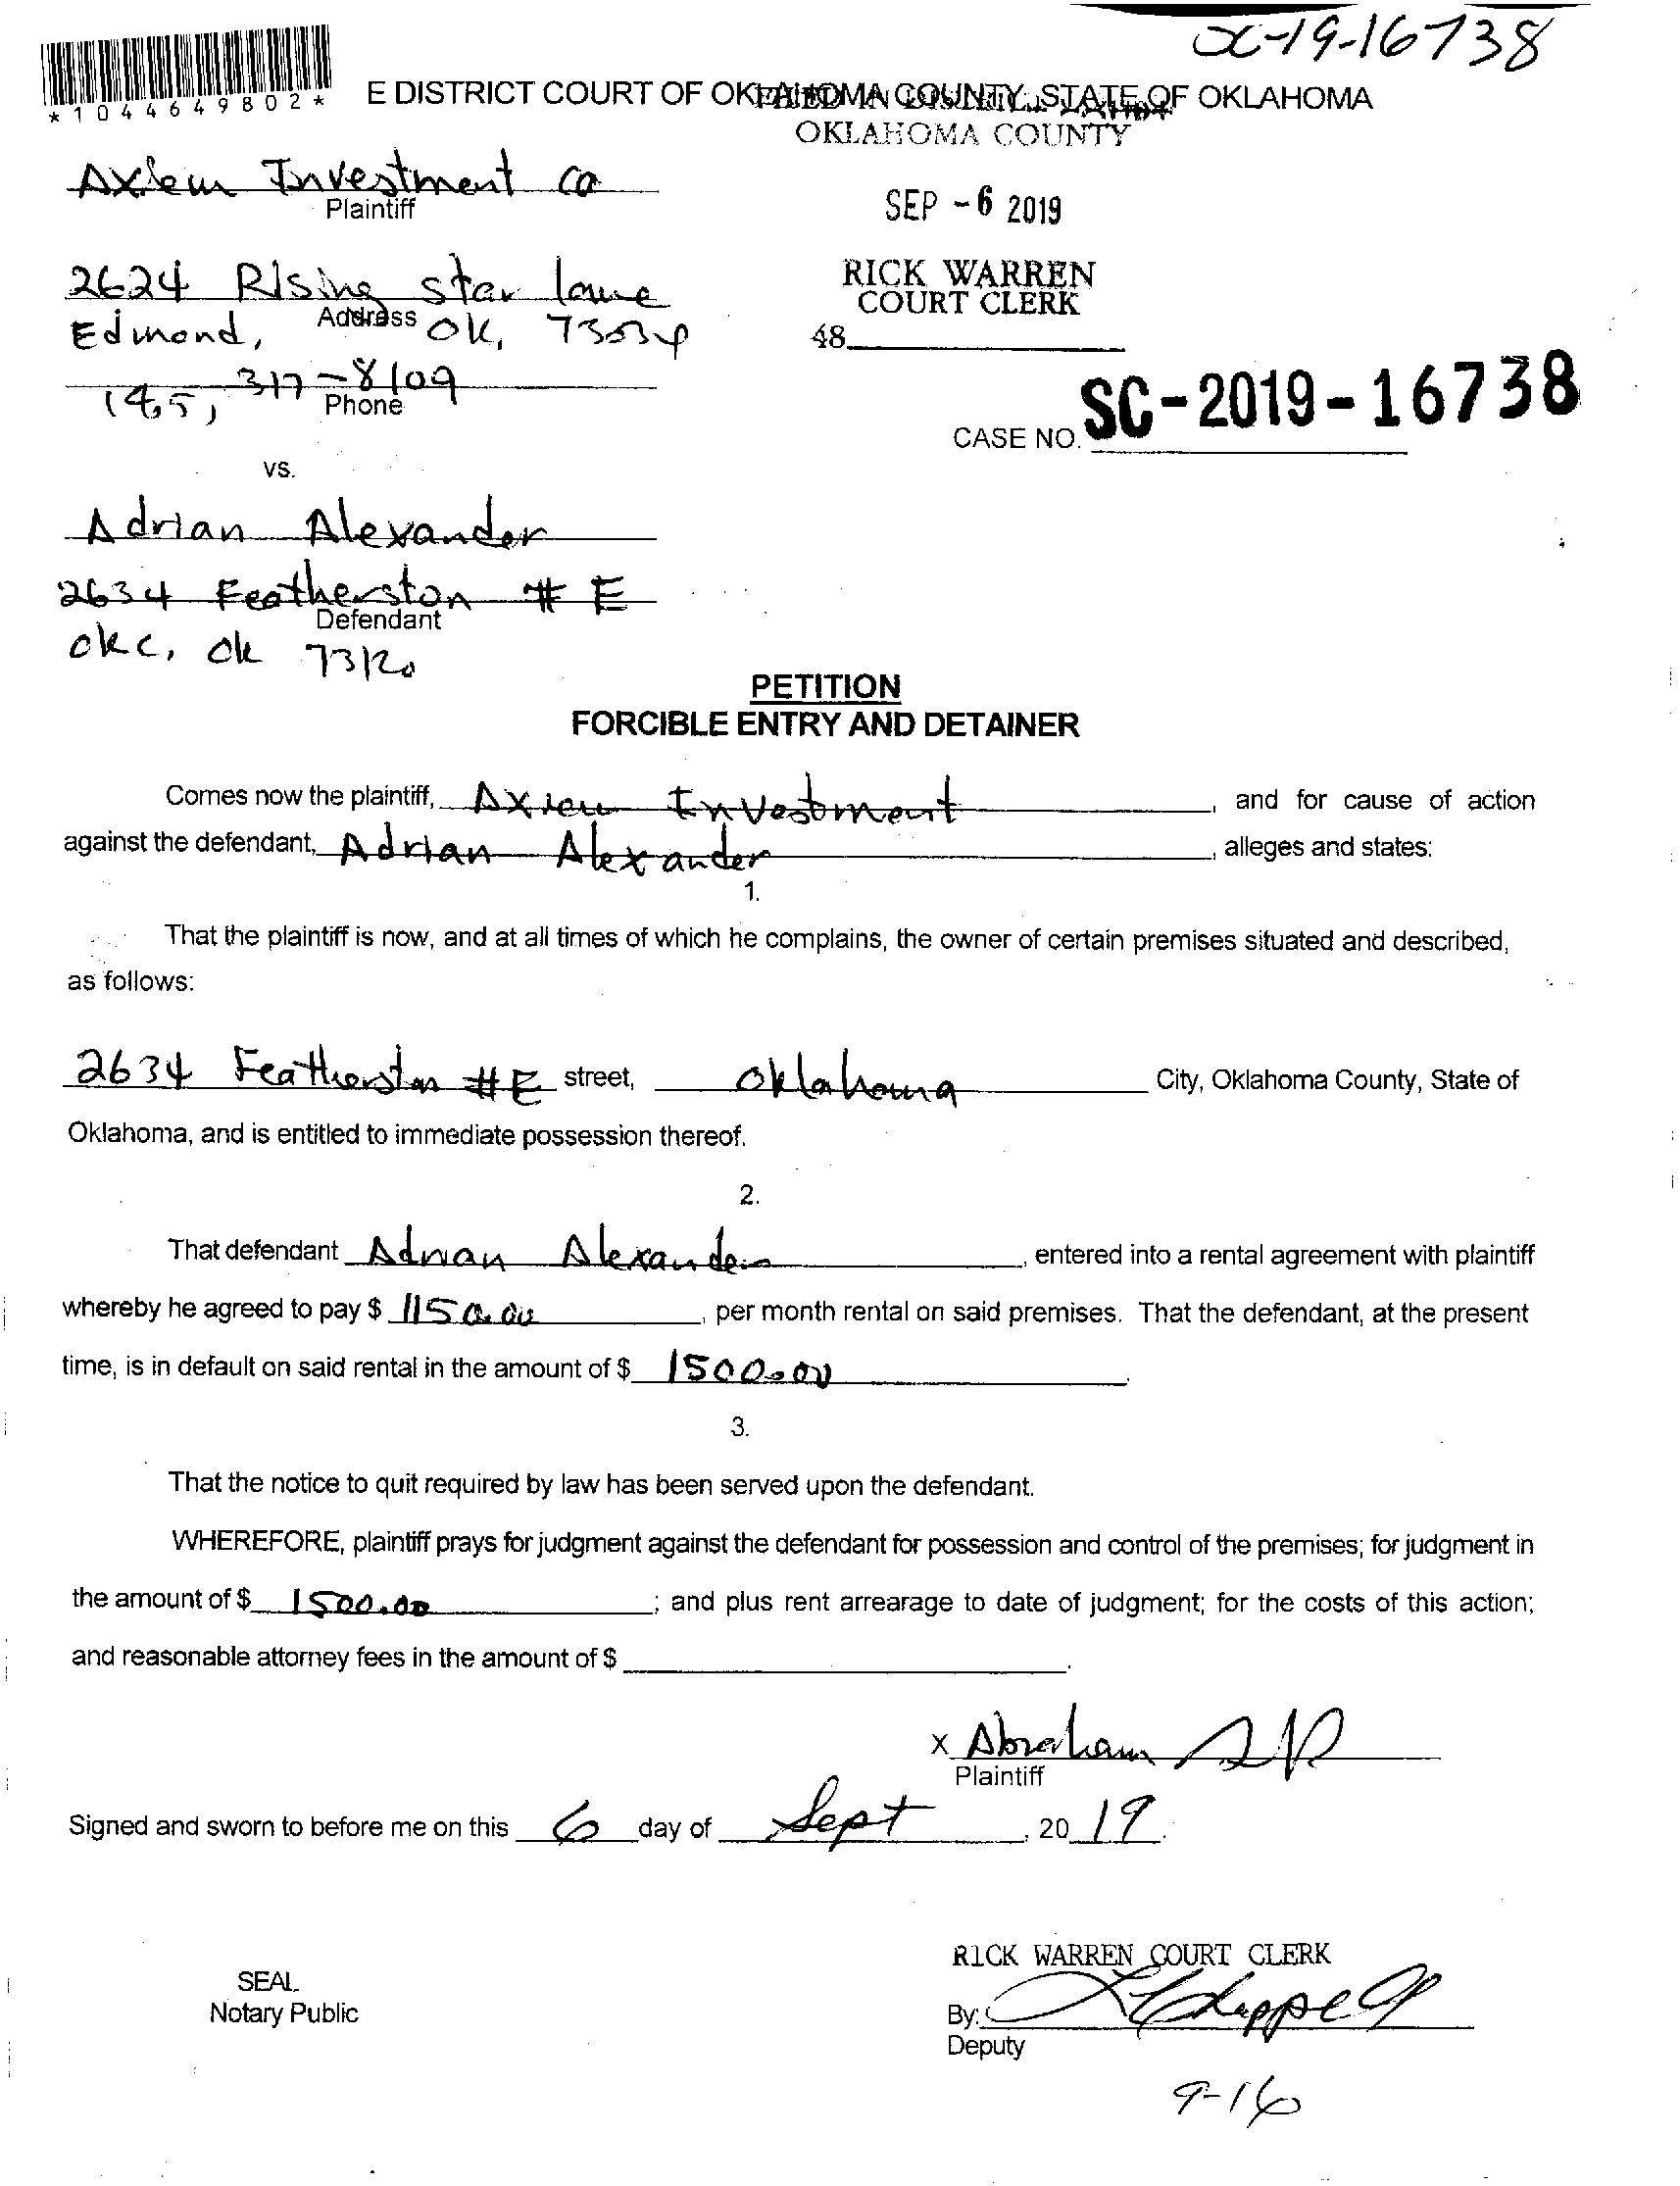 SC-19-16738
*1044649802*
E DISTRICT COURT OF OKLAHOMA COUNTY, STATE OF OKLAHOMA
OKLAHOMA COUNTY
Investment Co
Plaintiff
SEP -6 2019
2624 Rising Star lane
Address
RICK WARREN
COURT CLERK
Edmond, OK,
48
317-8109
Phone
CASE NO. SC-2019-16738
vs.
Adrian Alexander
2634 Featherston # E
Defendant
okc, ok 73120
PETITION
FORCIBLE ENTRY AND DETAINER
Comes now the plaintiff, Investment, and for cause of action
against the defendant, Adrian Alexander, alleges and states:
1.
That the plaintiff is now, and at all times of which he complains, the owner of certain premises situated and described,
as follows:
2634 Featherston #E street, Oklahoma City, Oklahoma County, State of
Oklahoma, and is entitled to immediate possession thereof.
2.
That defendant Adrian Alexander, entered into a rental agreement with plaintiff
whereby he agreed to pay $ 1150.00, per month rental on said premises. That the defendant, at the present
time, is in default on said rental in the amount of $ 1500.00.
3.
That the notice to quit required by law has been served upon the defendant.
WHEREFORE, plaintiff prays for judgment against the defendant for possession and control of the premises; for judgment in
the amount of $ 1500.00; and plus rent arrearage to date of judgment; for the costs of this action;
and reasonable attorney fees in the amount of $.
X Abraham
Plaintiff
Signed and sworn to before me on this 6 day of Sept, 20 19.
RICK WARREN COURT CLERK
SEAL
Notary Public
By:
Deputy
9-16